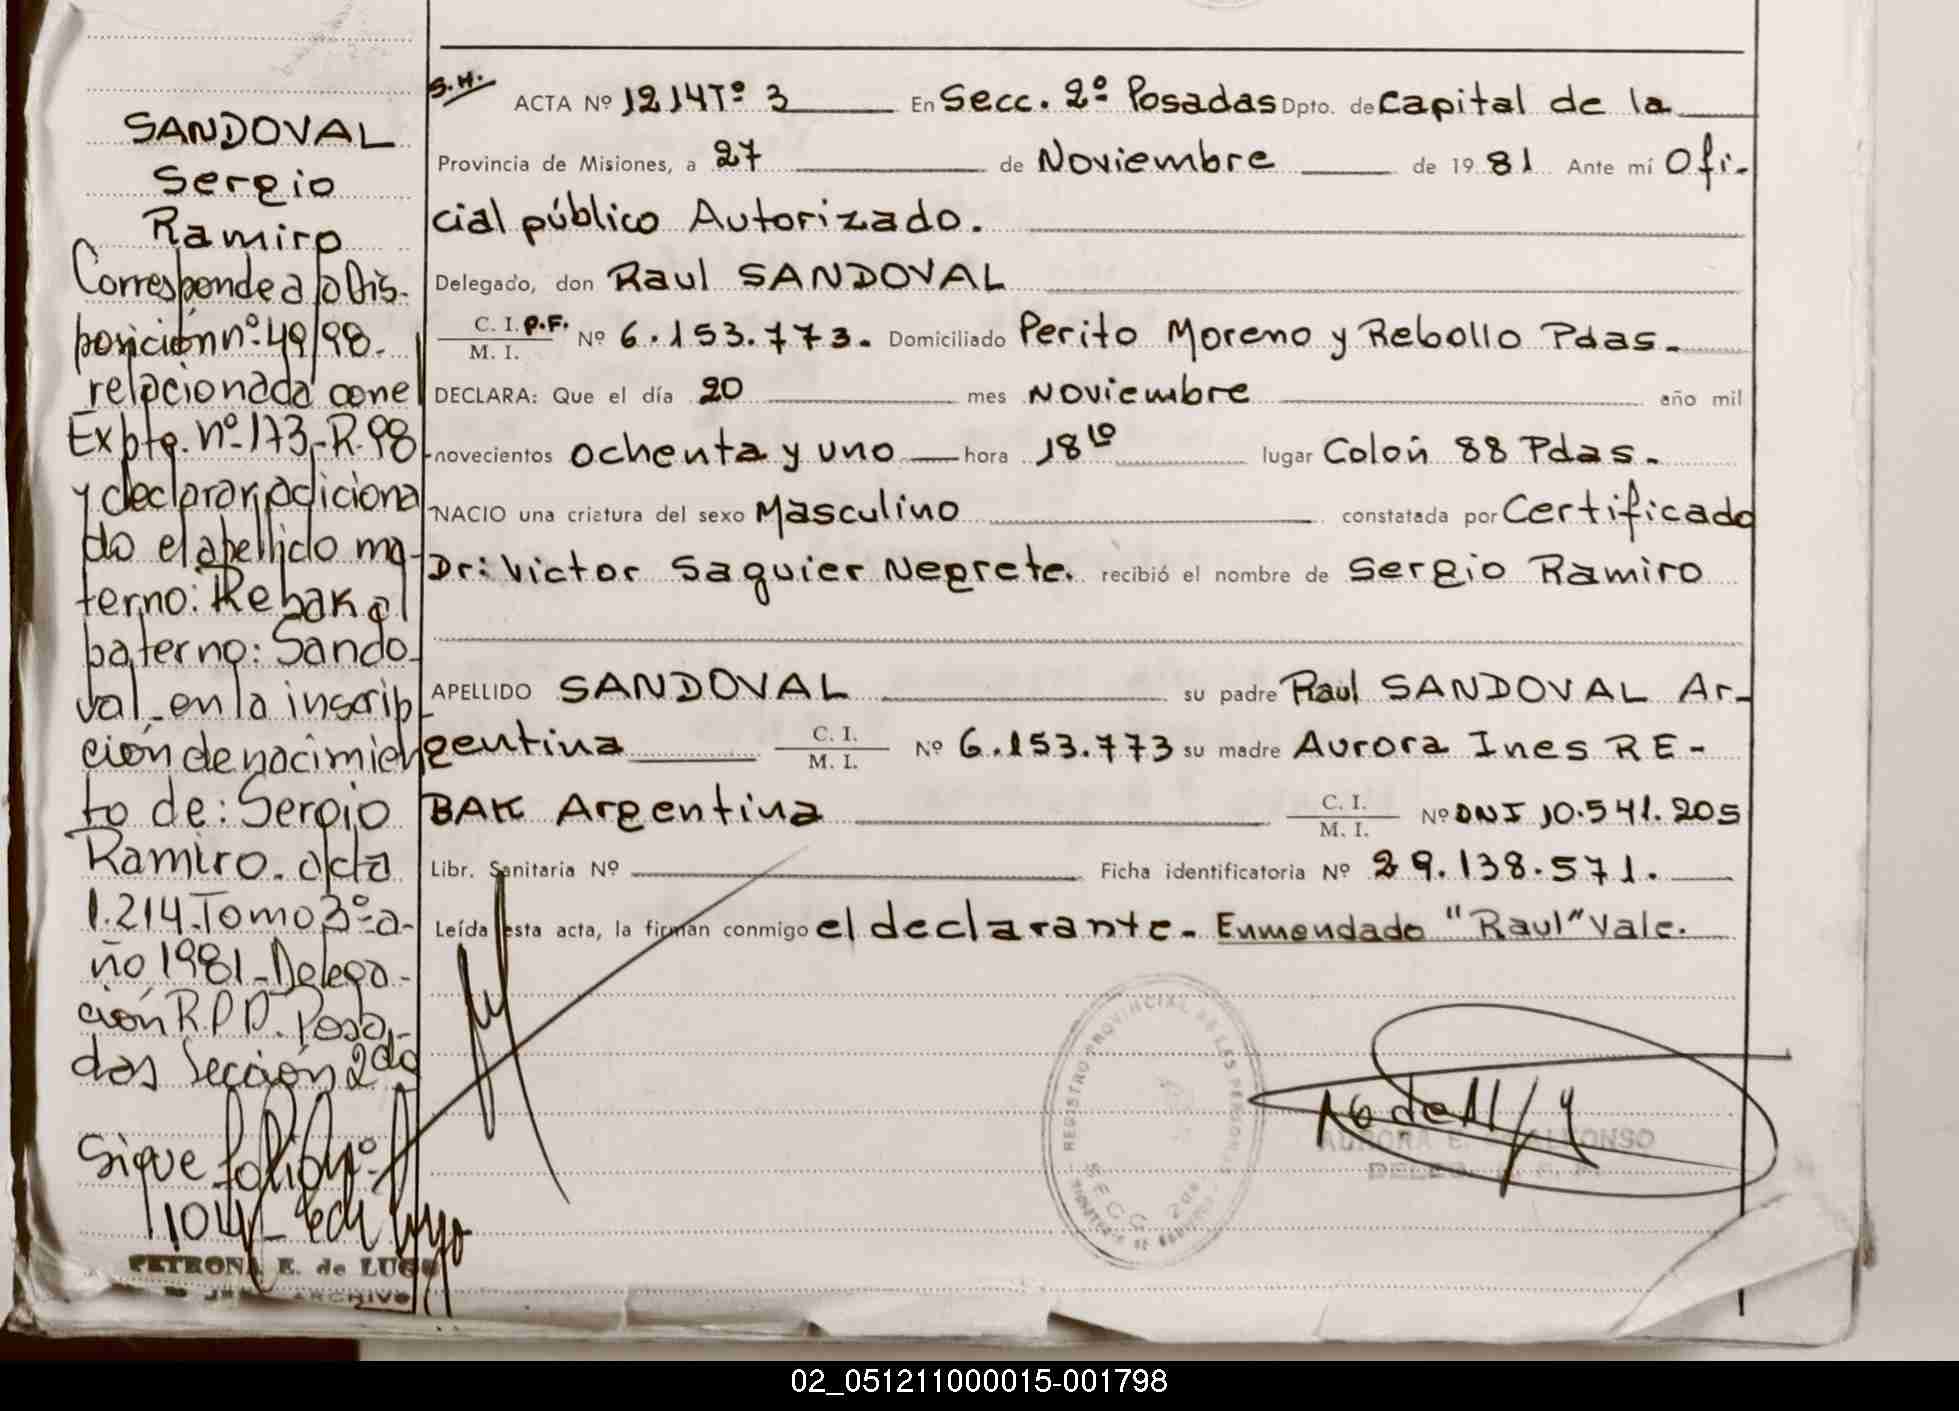 SANDOVAL
Sergio
Ramiro
Corresponde a la Dis-
posición nº 49/98.
relacionada con el
Expte. nº 173-R-98
y declarar, adiciona
do el apellido ma-
terno: Rebak al
paterno: Sando-
val en la inscrip-
ción de nacimien
to de: Sergio
Ramiro. acta
1.214. Tomo 3º a-
ño 1981 - Delega-
ción R.P.P. Posa-
das Sección 2da
Sigue folio nº
PETRONA E. de LUGO
ARCHIVO
S.H. ACTA Nº 1214 Tº 3 En Secc. 2º Posadas Dpto. de Capital de la
Provincia de Misiones, a 27 de Noviembre de 1981 Ante mí Ofi-
cial público Autorizado.
Delegado, don Raul SANDOVAL
C. I. P.F. M. I. Nº 6.153.773. Domiciliado Perito Moreno y Rebollo Pdas.
DECLARA: Que el día 20 mes Noviembre año mil
novecientos ochenta y uno hora 18 10 lugar Colón 88 Pdas.
NACIO una criatura del sexo Masculino constatada por Certificado
Dr: Victor Saguier Negrete. recibió el nombre de Sergio Ramiro
APELLIDO SANDOVAL su padre Raul SANDOVAL Ar-
gentina C. I. M. I. Nº 6.153.773 su madre Aurora Ines RE-
BAK Argentina C. I. M. I. Nº DNI 10.541.205
Libr. Sanitaria Nº Ficha identificatoria Nº 29.138.571.
Leída esta acta, la firman conmigo el declarante. Enmendado "Raul" Vale.
REGISTRO PROVINCIAL DE LAS PERSONAS
SECC. 2da
AURORA E.
02_051211000015-001798